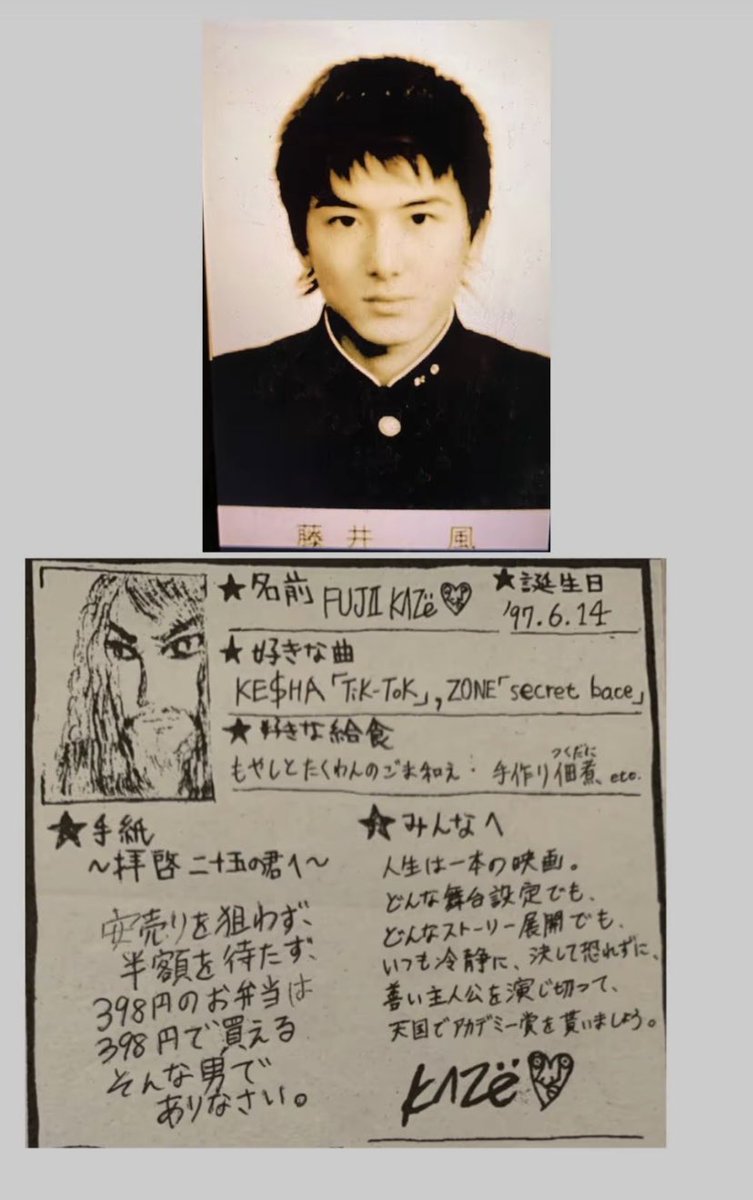 藤井 風
★名前 FUJII KAZë
★誕生日
'97.6.14
★好きな曲
KE$HA「TiK-ToK」, ZONE「secret bace」
★好きな給食
もやしとたくわんのごま和え・手作り佃煮、etc.
つくだに
★手紙
～拝啓 二十五の君へ～
安売りを狙わず、
半額を待たず、
398円のお弁当は
398円で買える
そんな男で
ありなさい。
★みんなへ
人生は一本の映画。
どんな舞台設定でも、
どんなストーリー展開でも、
いつも冷静に、決して恐れずに、
善い主人公を演じ切って、
天国でアカデミー賞を貰いましょう。
KAZë